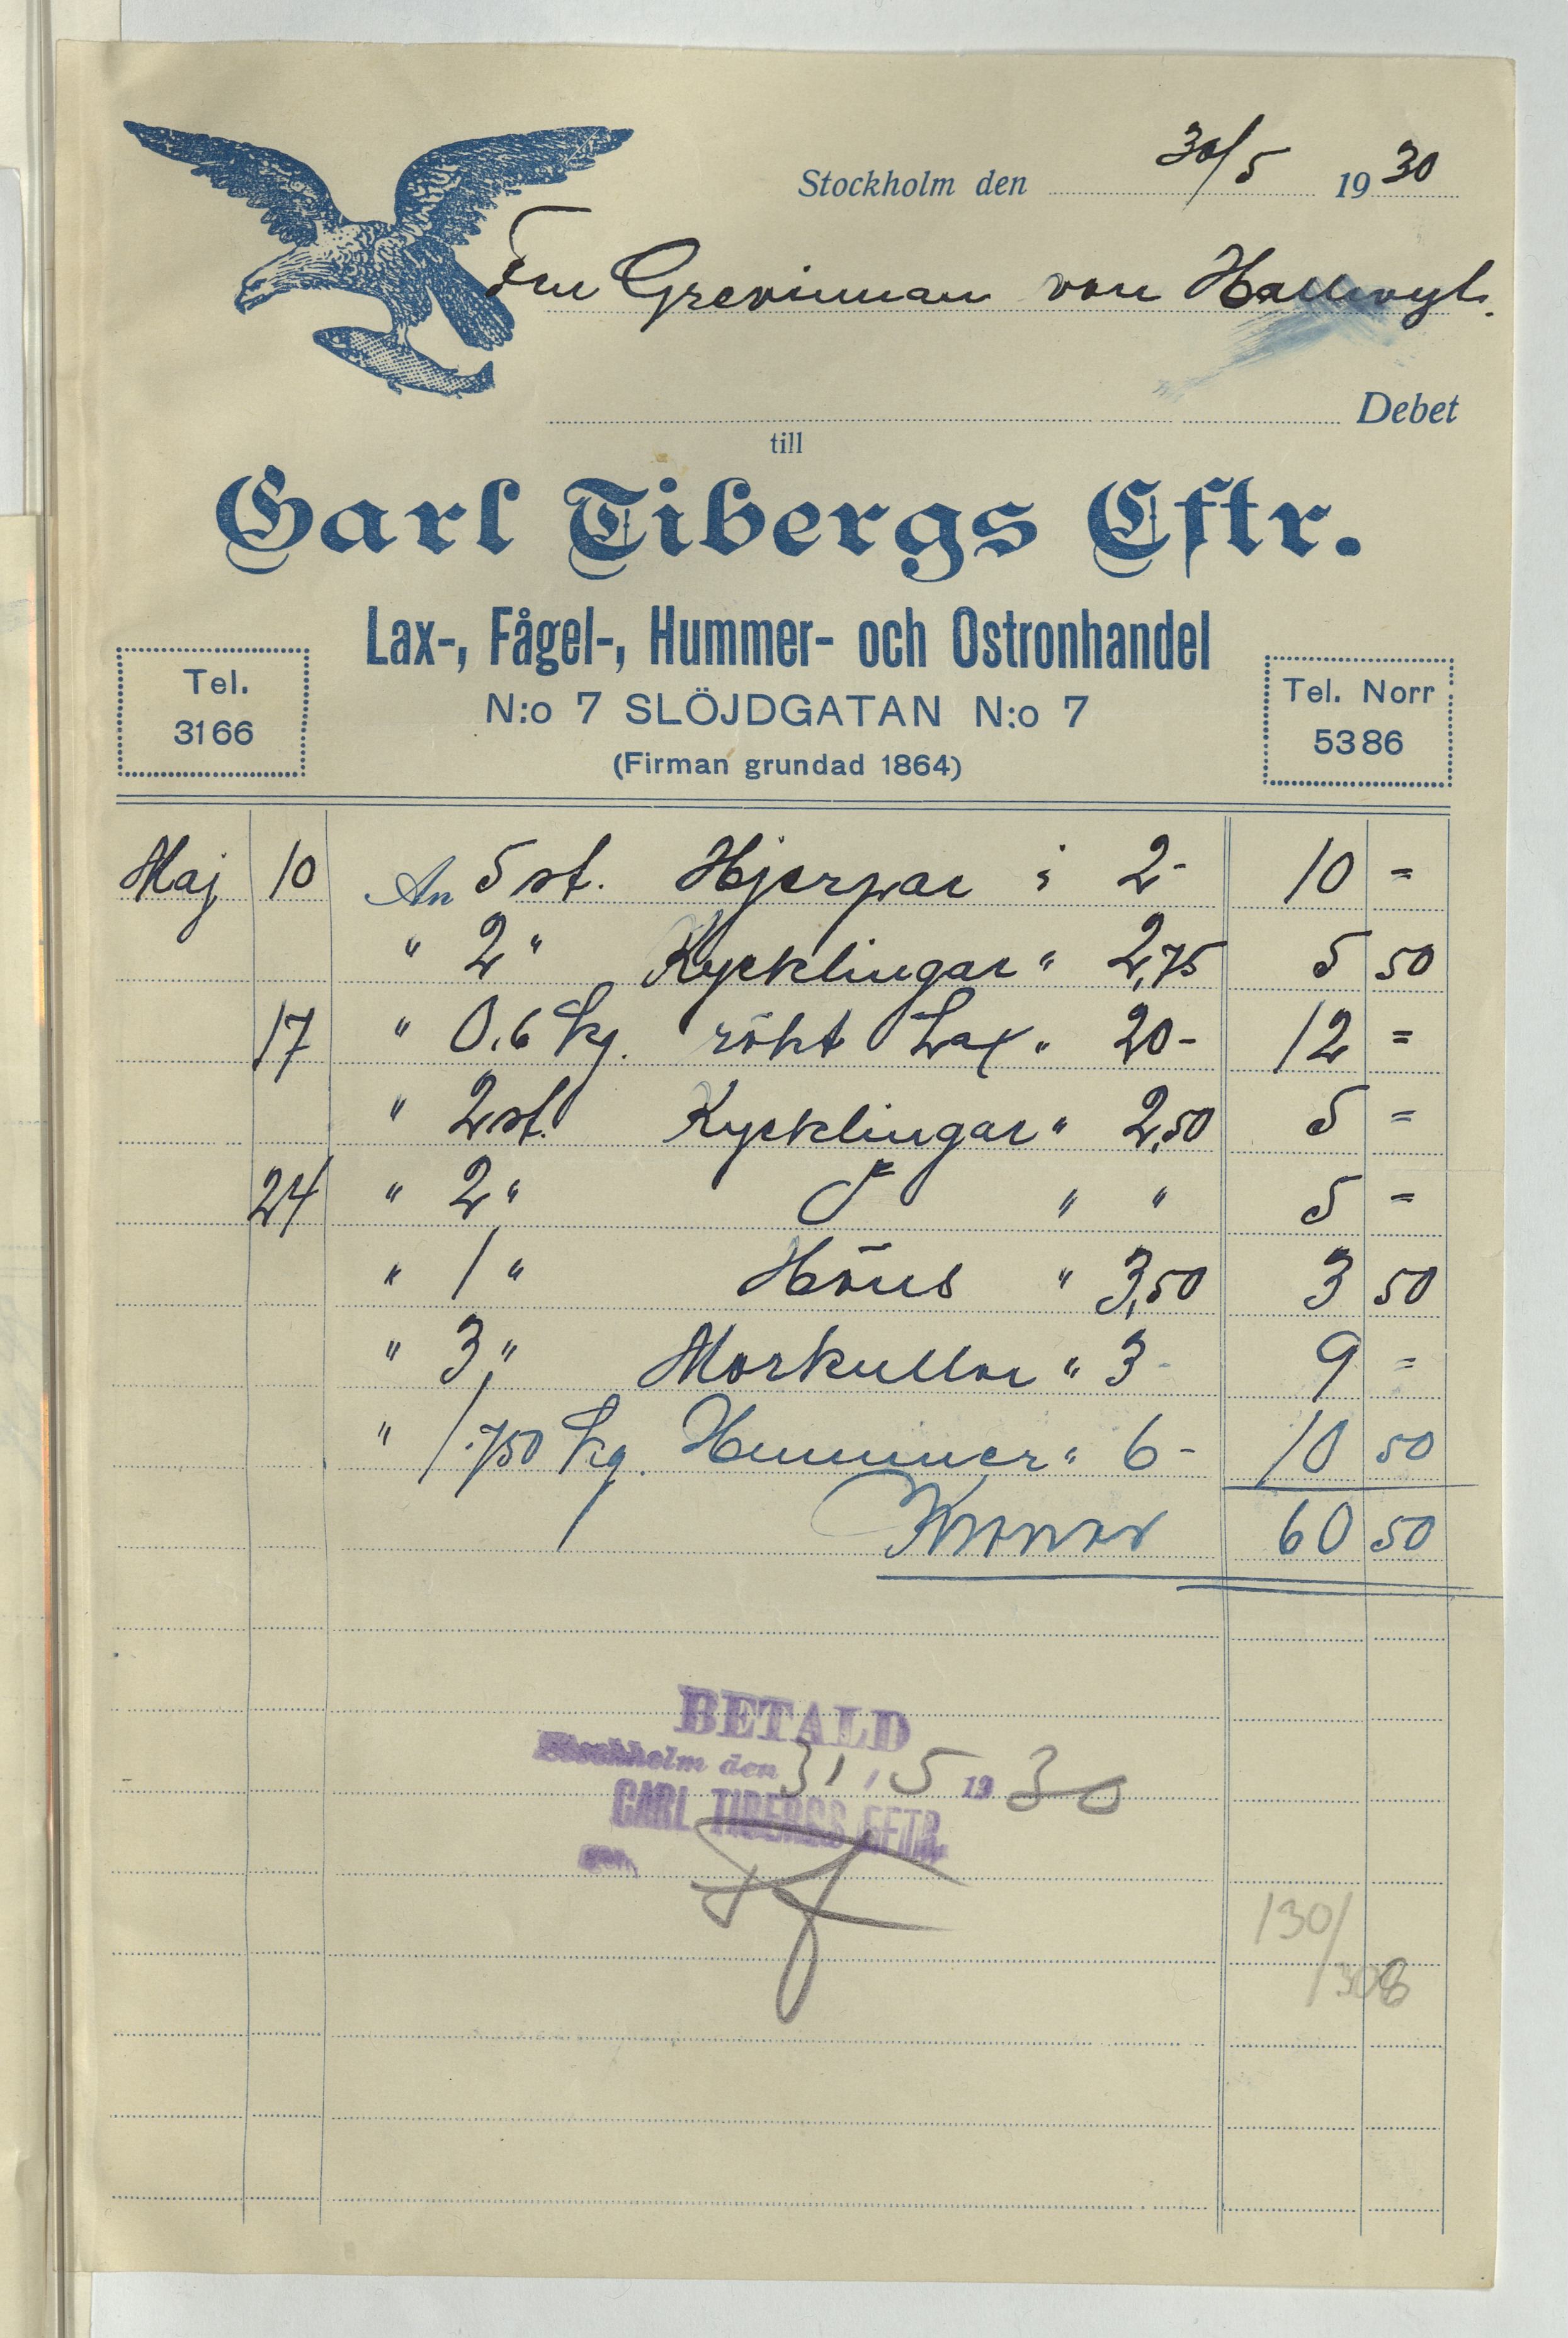 Stockholm den 30/5 1930
Fru Grevinnan von Hallwyl.
Debet
till
Carl Tibergs Eftr.
Lax-, Fågel-, Hummer- och Ostronhandel
N:o 7 SLÖJDGATAN N:o 7
(Firman grundad 1864)
Tel.
3166
Tel. Norr
5386
Maj 10 An 5 st. Hjerpar à 2- 10 =
" 2 " Kycklingar " 2,75 5 50
17 " 0,6 kg. rökt Lax " 20- 12 =
" 2 st. Kycklingar " 2,50 5 =
24 " 2 " " " 5 =
" 1 " Höns " 3,50 3 50
" 3 " Morkullor " 3- 9 =
" 1.750 kg. Hummer " 6- 10 50
Kronor 60 50
BETALD
Stockholm den 31/5 1930
CARL TIBERGS EFTR.
130/
1308